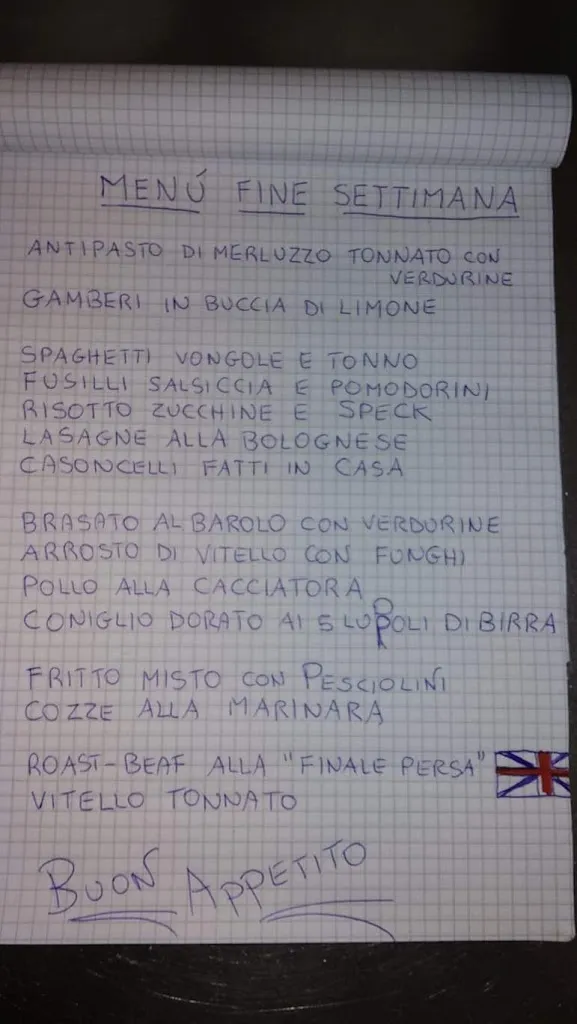 MENÚ FINE SETTIMANA
ANTIPASTO DI MERLUZZO TONNATO CON
VERDURINE
GAMBERI IN BUCCIA DI LIMONE
SPAGHETTI VONGOLE E TONNO
FUSILLI SALSICCIA E POMODORINI
RISOTTO ZUCCHINE E SPECK
LASAGNE ALLA BOLOGNESE
CASONCELLI FATTI IN CASA
BRASATO AL BAROLO CON VERDURINE
ARROSTO DI VITELLO CON FUNGHI
POLLO ALLA CACCIATORA
CONIGLIO DORATO AI 5 LUPPOLI DI BIRRA
FRITTO MISTO CON PESCIOLINI
COZZE ALLA MARINARA
ROAST-BEAF ALLA "FINALE PERSA"
VITELLO TONNATO
BUON APPETITO